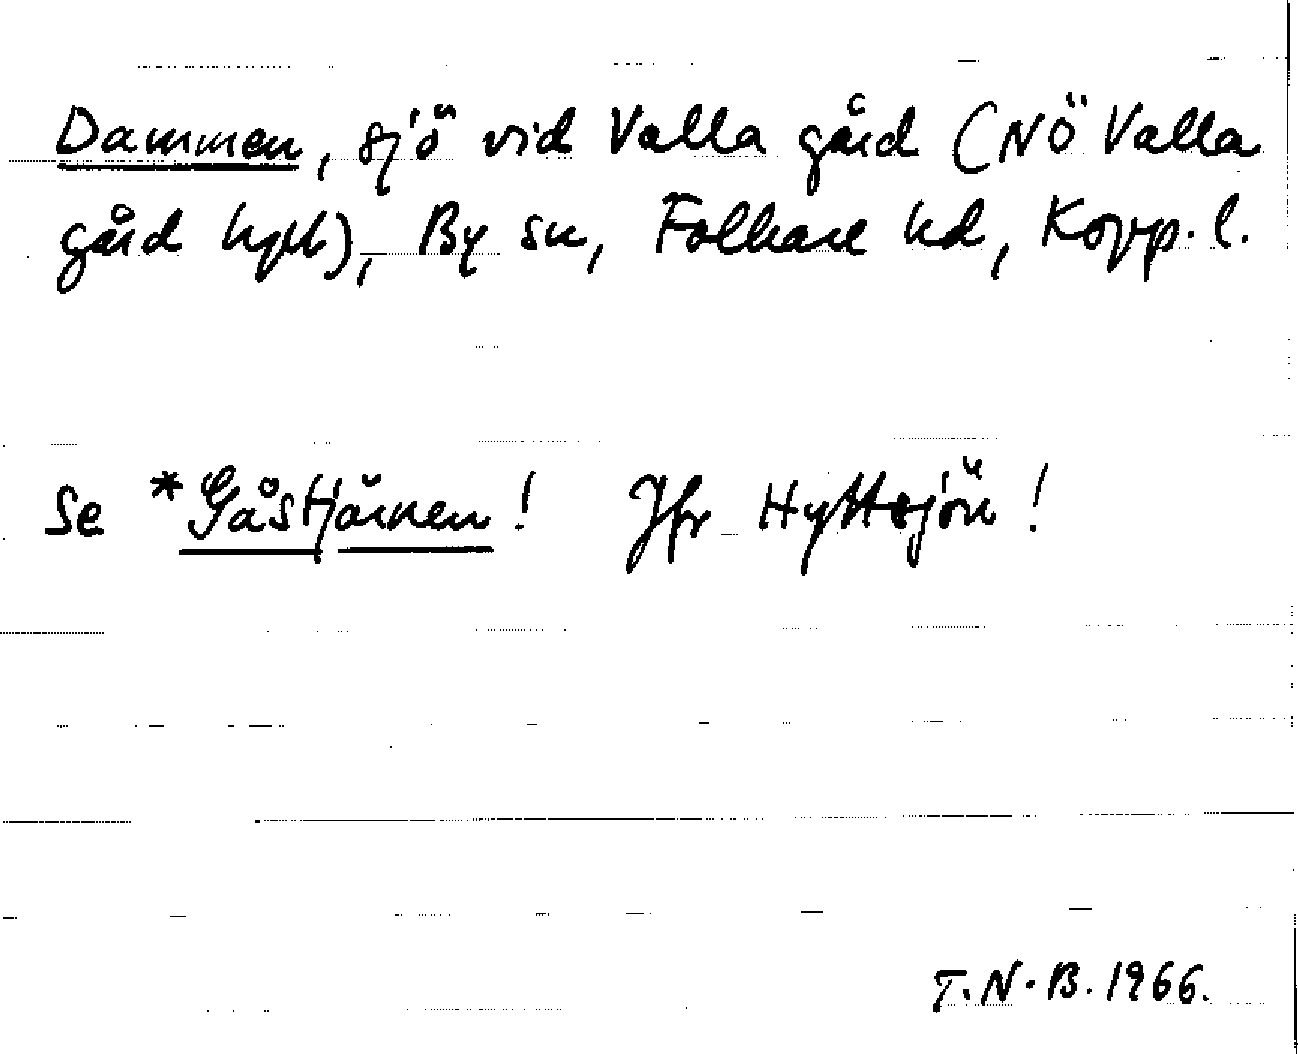 Dammen, sjö vid Valla gård (NÖ Valla
gård hytt), By sn, Folkare hd, Kopp. l.
Se *Gåstjärnen! Jfr Hyttsjön!
T.N.B. 1966.